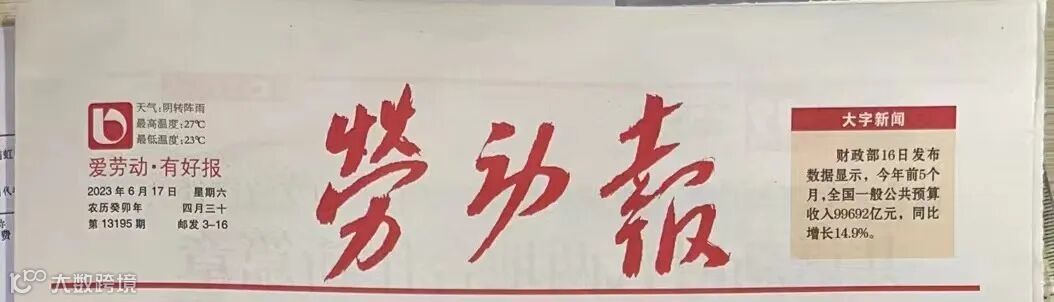 天气:阴转阵雨
最高温度:27℃
最低温度:23℃
爱劳动·有好报
2023年6月17日 星期六
农历癸卯年 四月三十
第13195期 邮发3-16
勞动報
大字新闻
财政部16日发布
数据显示，今年前5个
月,全国一般公共预算
收入99692亿元，同比
增长14.9%。
大数跨境